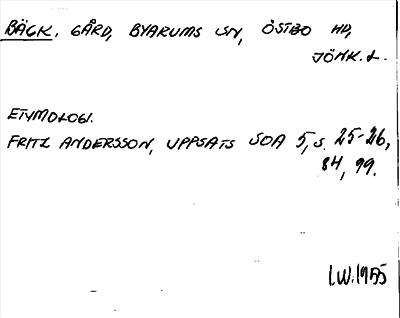 BÄCK. GÅRD, BYARUMS SN, ÖSTBO HD,
JÖNK. L.
ETYMOLOGI.
FRITZ ANDERSSON, UPPSATS SOA 5, S. 25-26,
84, 99.
I.W. 1955